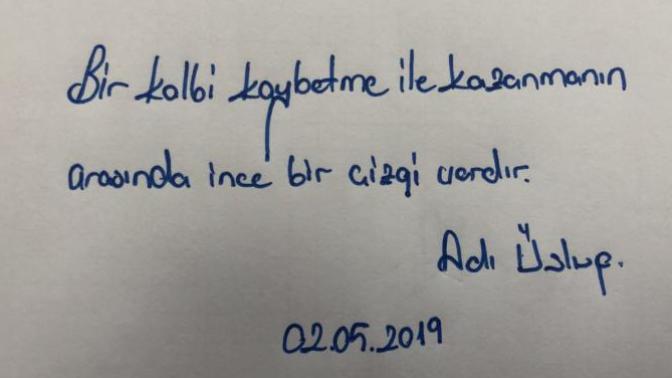 Bir kalbi kaybetme ile kazanmanın
arasında ince bir çizgi vardır.
Adı Üslup.
02.05.2019